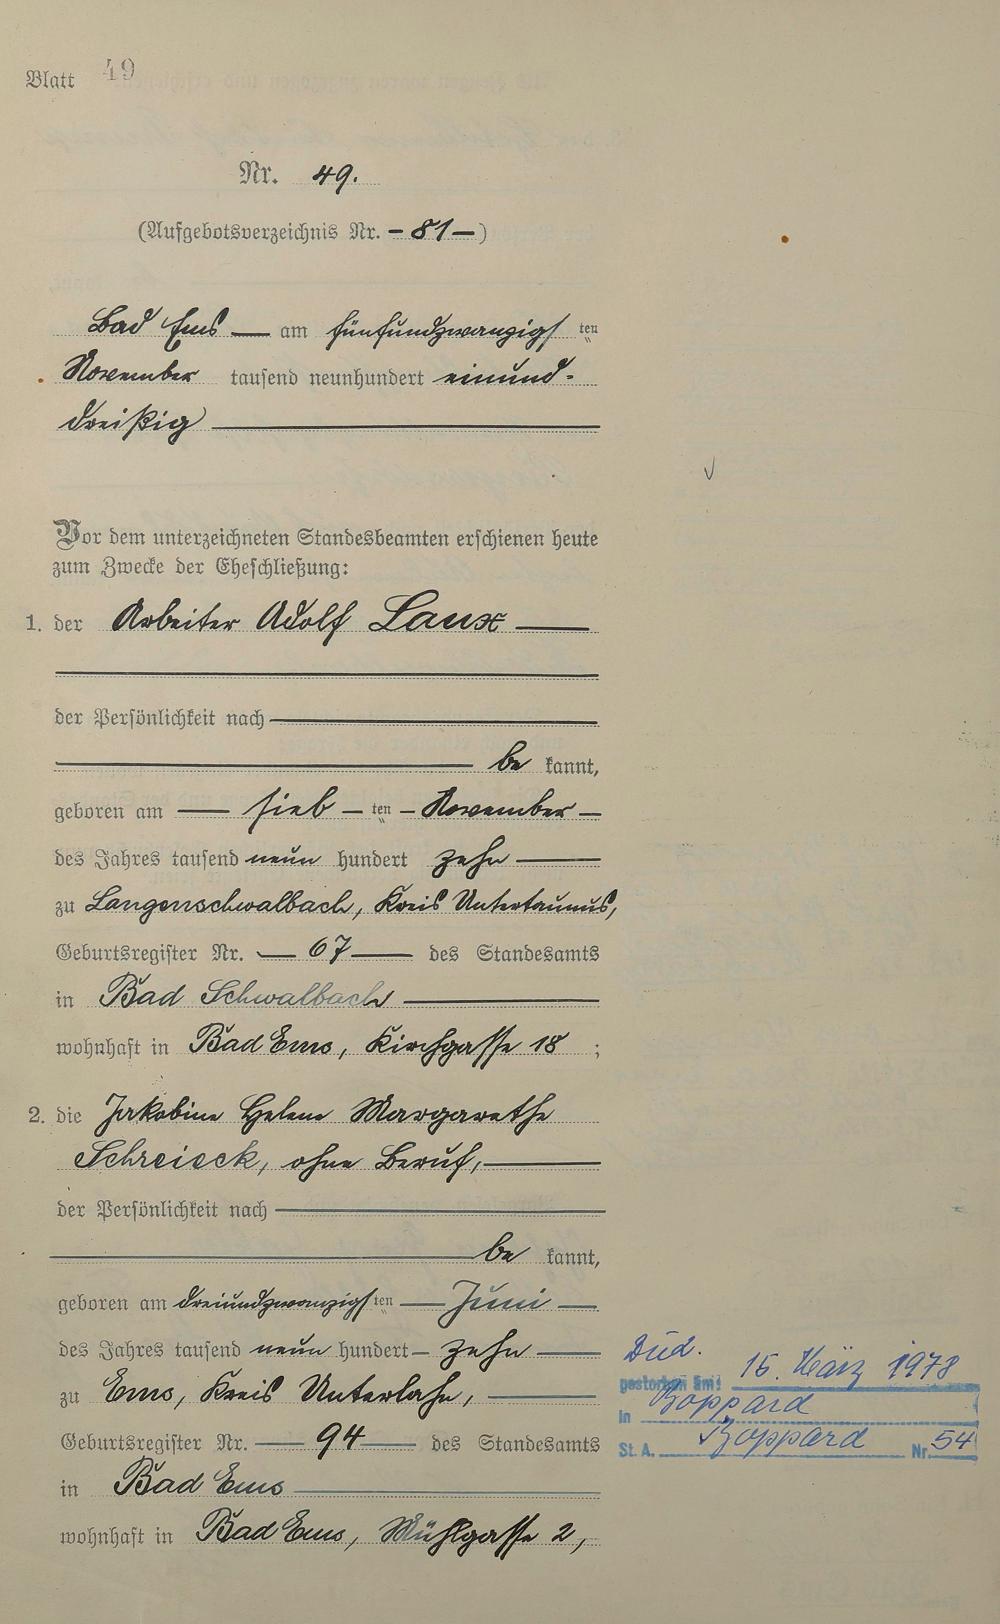 Blatt 49
Nr. 49.
(Aufgebotsverzeichnis Nr. - 81 -)
Bad Ems — am fünfundzwanzigsten
November tausend neunhundert einund-
dreißig
Vor dem unterzeichneten Standesbeamten erschienen heute
zum Zwecke der Eheschließung:
1. der Arbeiter Adolf Laux
der Persönlichkeit nach
be kannt,
geboren am — sieb - ten - November -
des Jahres tausend neun hundert zehn
zu Langenschwalbach, Kreis Untertaunus,
Geburtsregister Nr. — 67 — des Standesamts
in Bad Schwalbach
wohnhaft in Bad Ems, Kirchgasse 18 ;
2. die Jakobine Helene Margarethe
Schreieck, ohne Beruf,
der Persönlichkeit nach
be kannt,
geboren am dreiundzwanzigsten — Juni —
des Jahres tausend neun hundert - zehn
zu Ems, Kreis Unterlahn,
Geburtsregister Nr. — 94 — des Standesamts
in Bad Ems
wohnhaft in Bad Ems, Mühlgasse 2,
gestorben am: 15. März 1978
in Boppard
St. A. Boppard Nr. 54